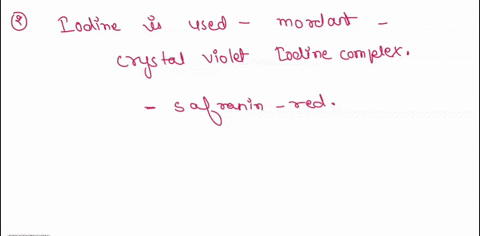 ② Iodine is used - mordant -
crystal violet Iodine complex.
- safranin - red.